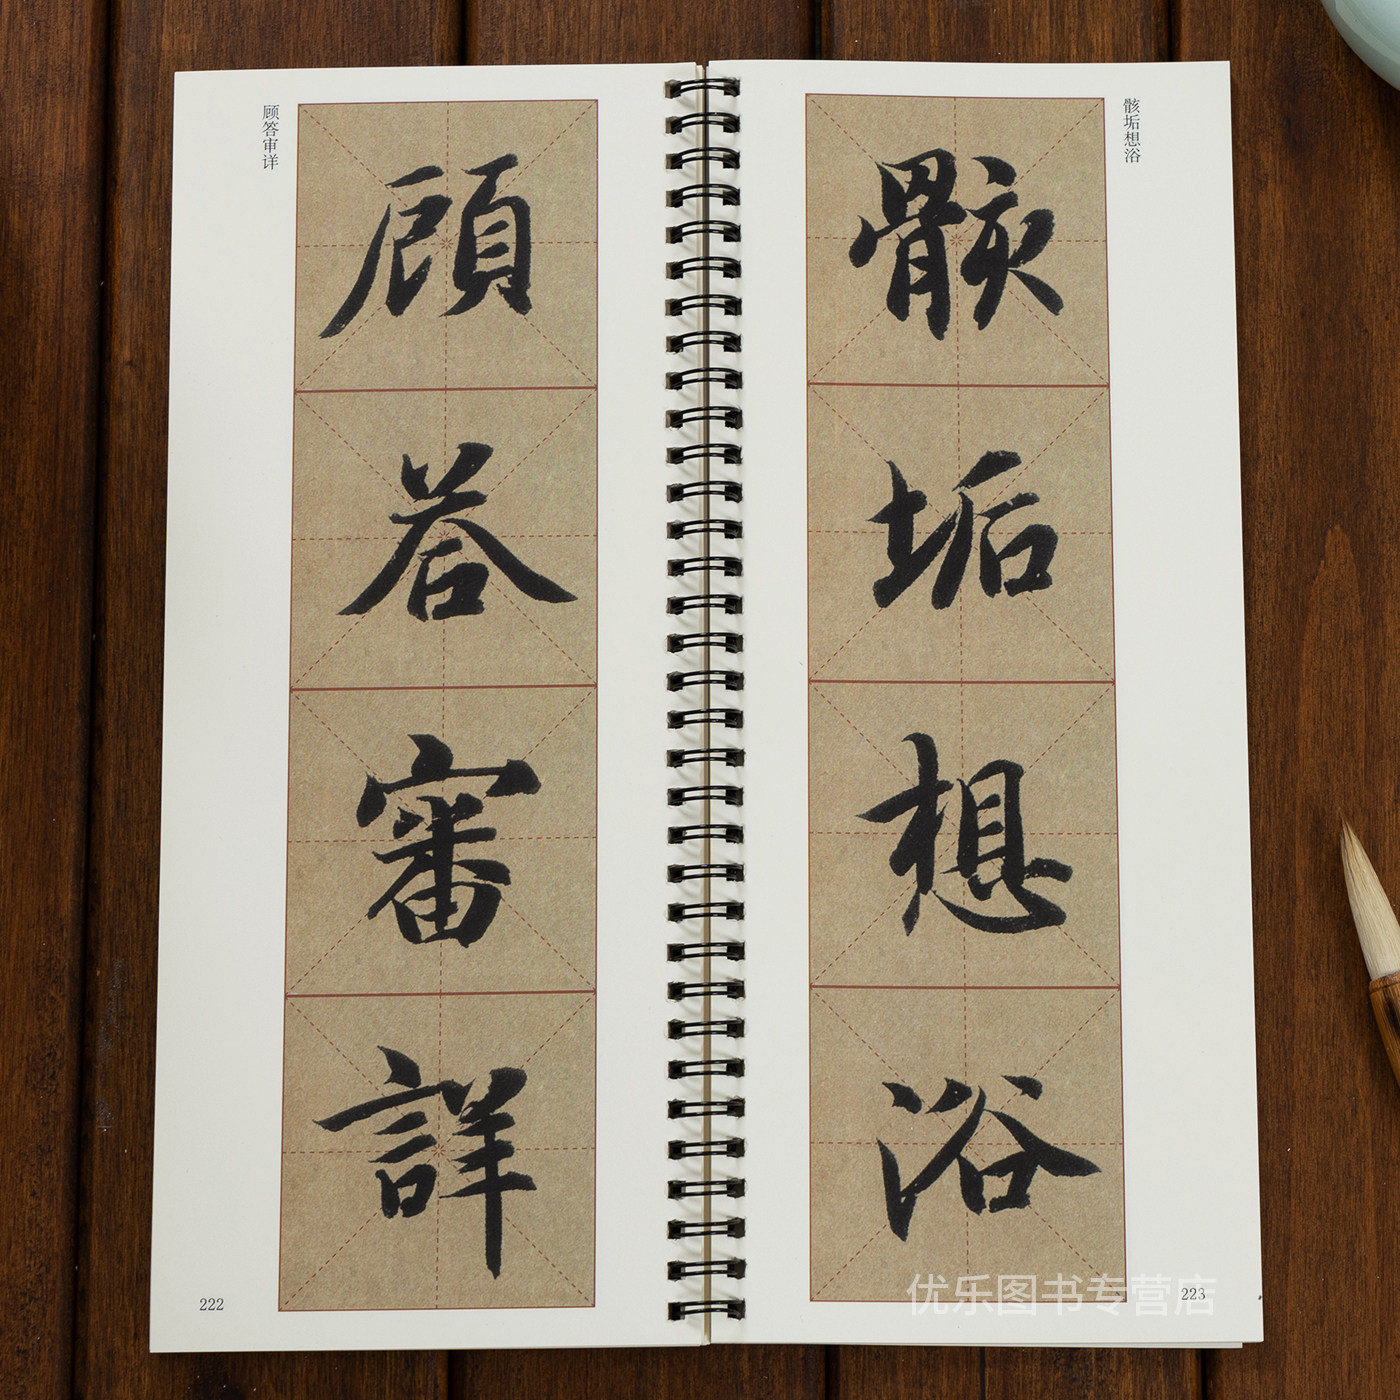 顾答审详
顧
答
審
詳
222
骸垢想浴
骸
垢
想
浴
223
优乐图书专营店